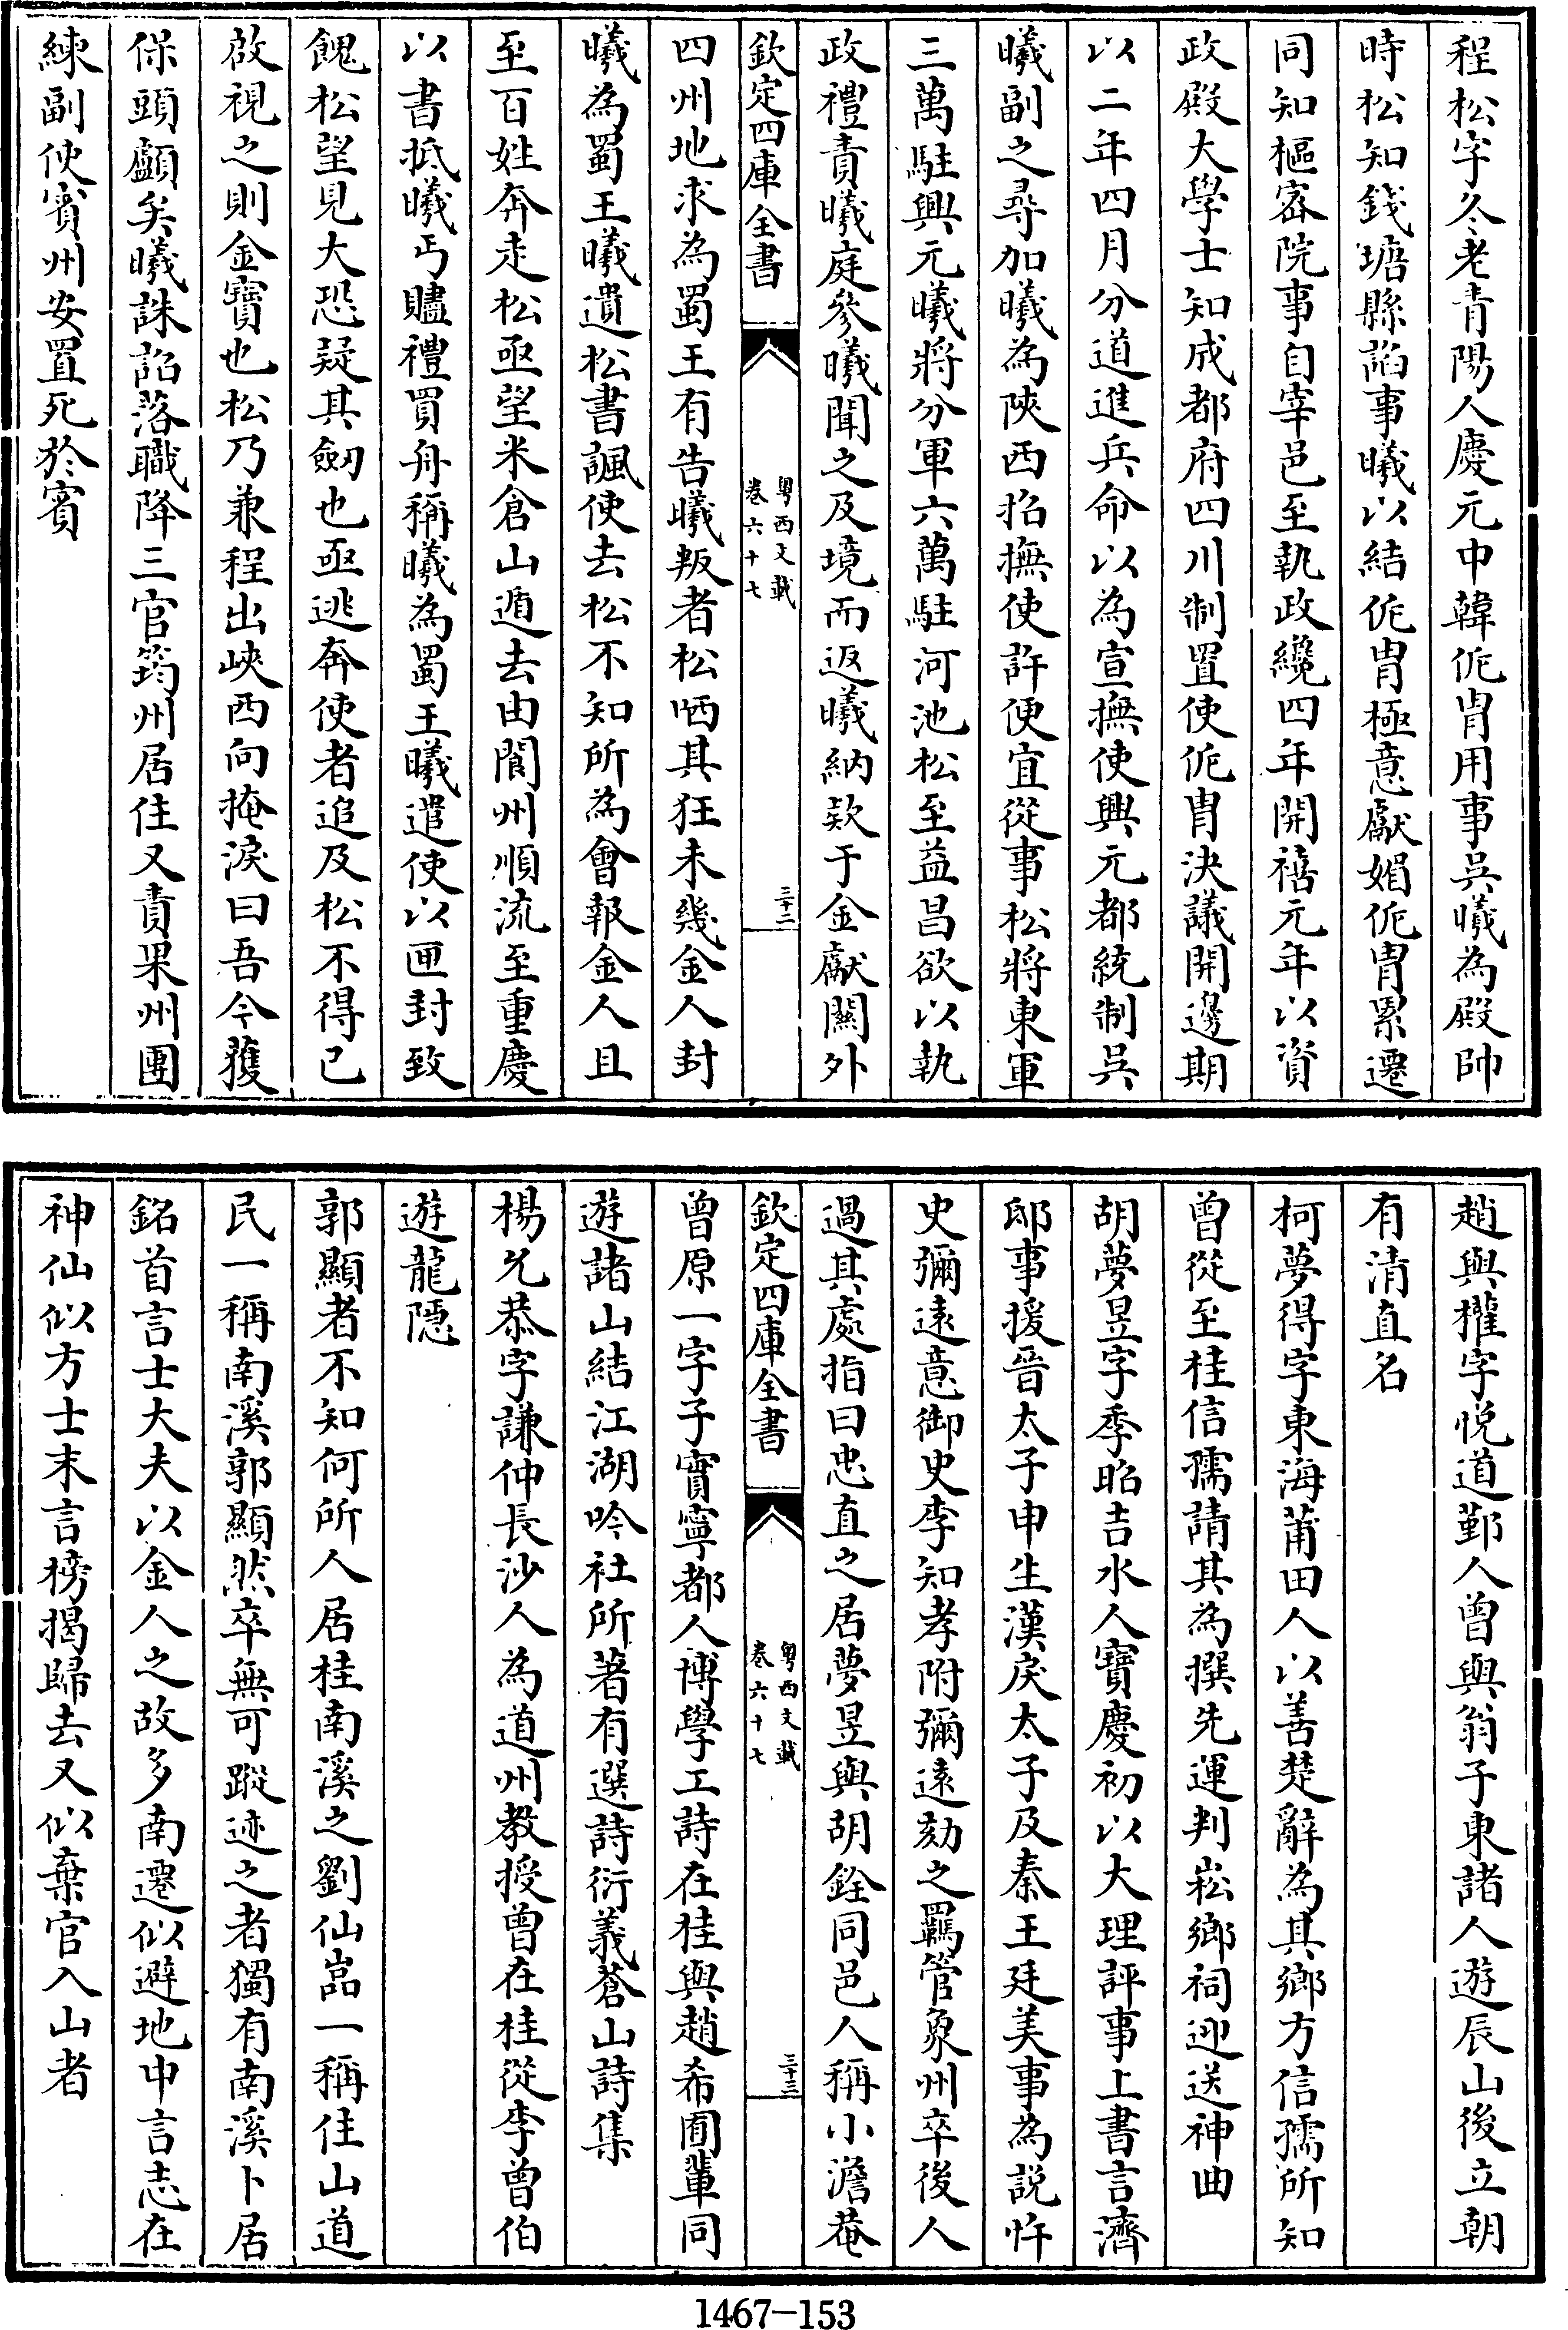 程松字冬老青陽人慶元中韓侂胄用事吳曦為殿帥
時松知錢塘縣諂事曦以結侂胄極意獻媚侂胄累遷
同知樞密院事自宰邑至執政纔四年開禧元年以資
政殿大學士知成都府四川制置使侂胄決議開邊期
以二年四月分道進兵命以為宣撫使興元都統制吳
曦副之尋加曦為陝西招撫使許便宜從事松將東軍
三萬駐興元曦將分軍六萬駐河池松至益昌欲以執
政禮責曦庭參曦聞之及境而返曦納款于金獻關外
欽定四庫全書
粵西文載
卷六十七
三十二
四州地求為蜀王有告曦叛者松哂其狂未幾金人封
曦為蜀王曦遺松書諷使去松不知所為會報金人且
至百姓奔走松亟望米倉山遁去由閬州順流至重慶
以書抵曦丐贐禮買舟稱曦為蜀王曦遣使以匣封致
餽松望見大恐疑其劒也亟逃奔使者追及松不得已
啟視之則金寶也松乃兼程出峽西向掩淚曰吾今獲
保頭顱矣曦誅詔落職降三官筠州居住又責果州團
練副使賓州安置死於賓
趙與懽字悅道鄞人曾與翁子東諸人遊辰山後立朝
有清直名
柯夢得字東海莆田人以善楚辭為其鄉方信孺所知
曾從至桂信孺請其為撰先運判崧鄉祠迎送神曲
胡夢昱字季昭吉水人寶慶初以大理評事上書言濟
邸事援晉太子申生漢戾太子及秦王廷美事為説忤
史彌遠意御史李知孝附彌遠劾之羈管象州卒後人
過其處指曰忠直之居夢昱與胡銓同邑人稱小澹菴
欽定四庫全書
粵西文載
卷六十七
三十三
曾原一字子實寧都人博學工詩在桂與趙希囿輩同
遊諸山結江湖吟社所著有選詩衍義蒼山詩集
楊允恭字謙仲長沙人為道州教授曾在桂從李曾伯
遊龍隱
郭顯者不知何所人居桂南溪之劉仙嵓一稱住山道
民一稱南溪郭顯然卒無可蹤迹之者獨有南溪卜居
銘首言士大夫以金人之故多南遷似避地中言志在
神仙似方士末言榜揭歸去又似棄官入山者
1467-153